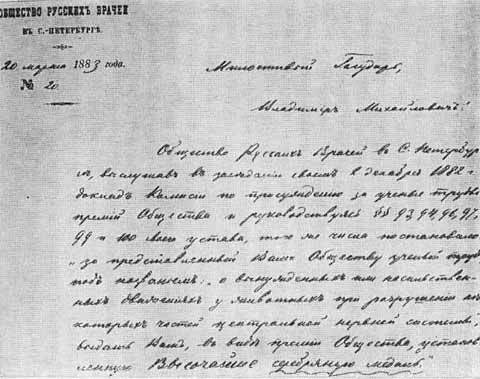 ОБЩЕСТВО РУССКИХЪ ВРАЧЕЙ
ВЪ С.-ПЕТЕРБУРГѢ.
20 марта 1883 года.
№ 20.
Милостивый Государь,
Владимиръ Михайловичъ!
Общество Русскихъ Врачей въ С. Петербур
гѣ, выслушавъ въ засѣданіи своемъ въ декабрѣ 1882 г.
докладъ Комисіи по присужденію за ученые труды
премій Общества и руководствуясь §§ 93, 94, 96, 97,
99 и 100 своего устава, того же числа постановило
„за представленный Вами Обществу ученый трудъ
подъ названіемъ: „о вынужденныхъ или насильствен-
ныхъ движеніяхъ у животныхъ при разрушеніи нѣ
которыхъ частей центральной нервной системы,
выдать Вамъ, въ видѣ преміи Общества, установ
ленную Высочайше серебряную медаль."